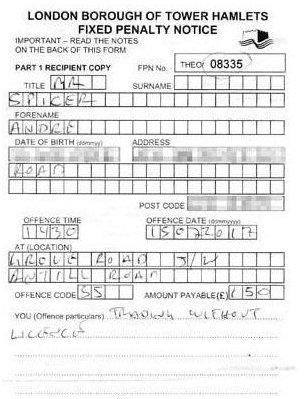 LONDON BOROUGH OF TOWER HAMLETS
FIXED PENALTY NOTICE
IMPORTANT – READ THE NOTES
ON THE BACK OF THIS FORM
PART 1 RECIPIENT COPY FPN No. THEO/ 08335
TITLE MR SURNAME
SPICER
FORENAME
ANDRE
DATE OF BIRTH (ddmmyy) ADDRESS
ROAD
POST CODE
OFFENCE TIME OFFENCE DATE (ddmmyyyy)
1430 15072017
AT (LOCATION)
GROVE ROAD J/W
ANTILL ROAD
OFFENCE CODE 55 AMOUNT PAYABLE(£) 150
YOU (Offence particulars) TRADING WITHOUT
LICENCE